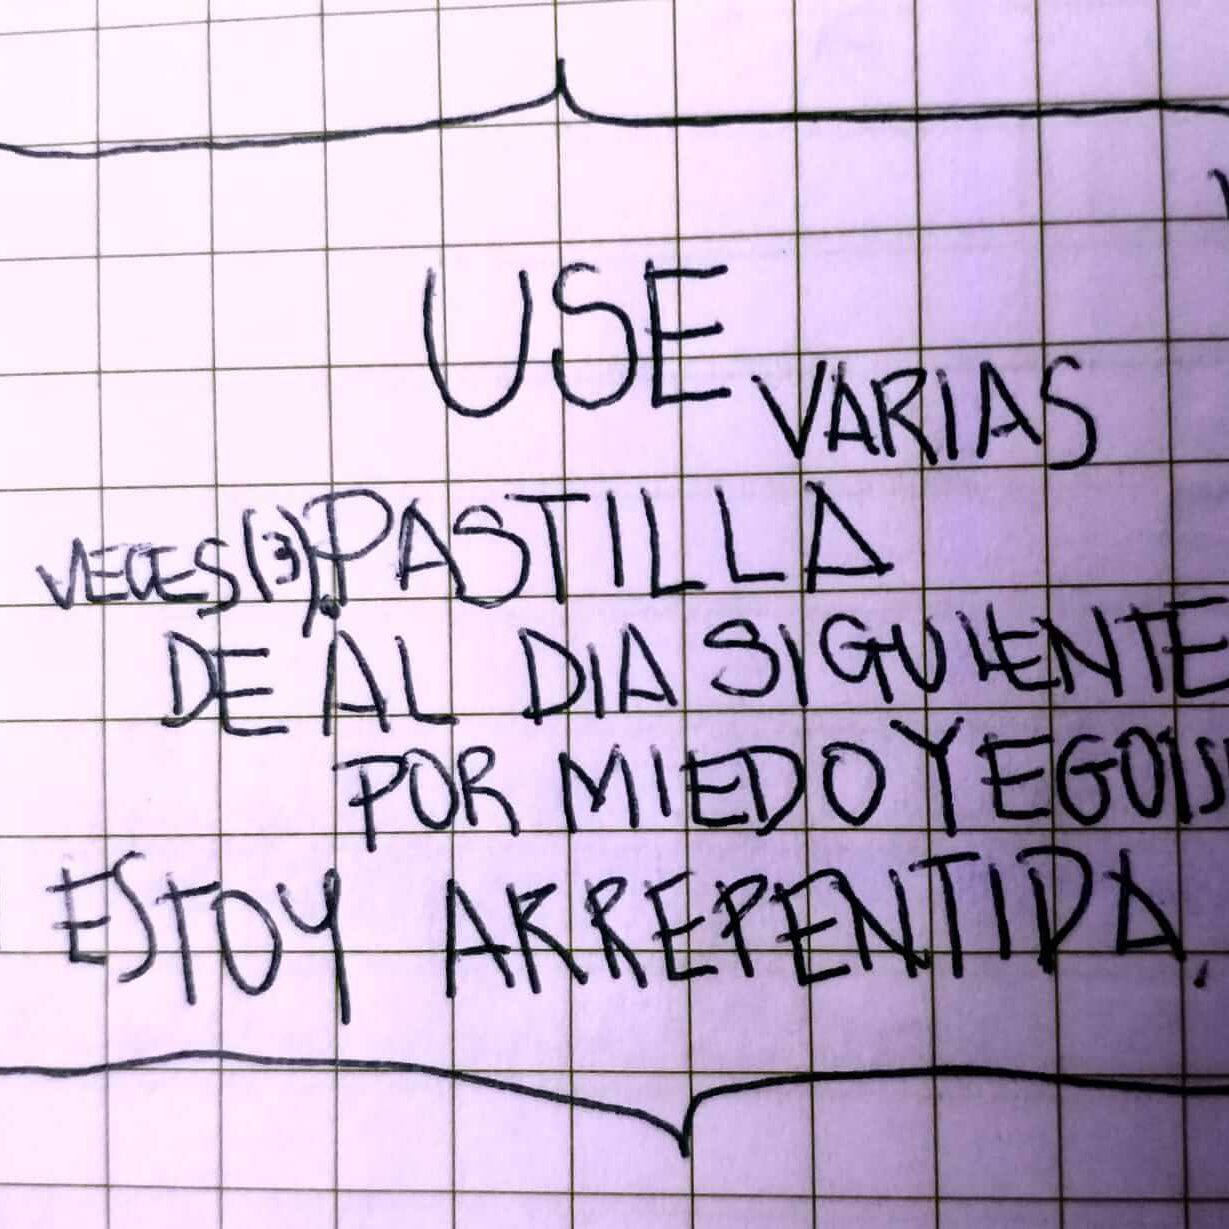 USE VARIAS
VECES(3), PASTILLA
DE AL DIA SIGUIENTE
POR MIEDO Y EGOIS
ESTOY ARREPENTIDA.